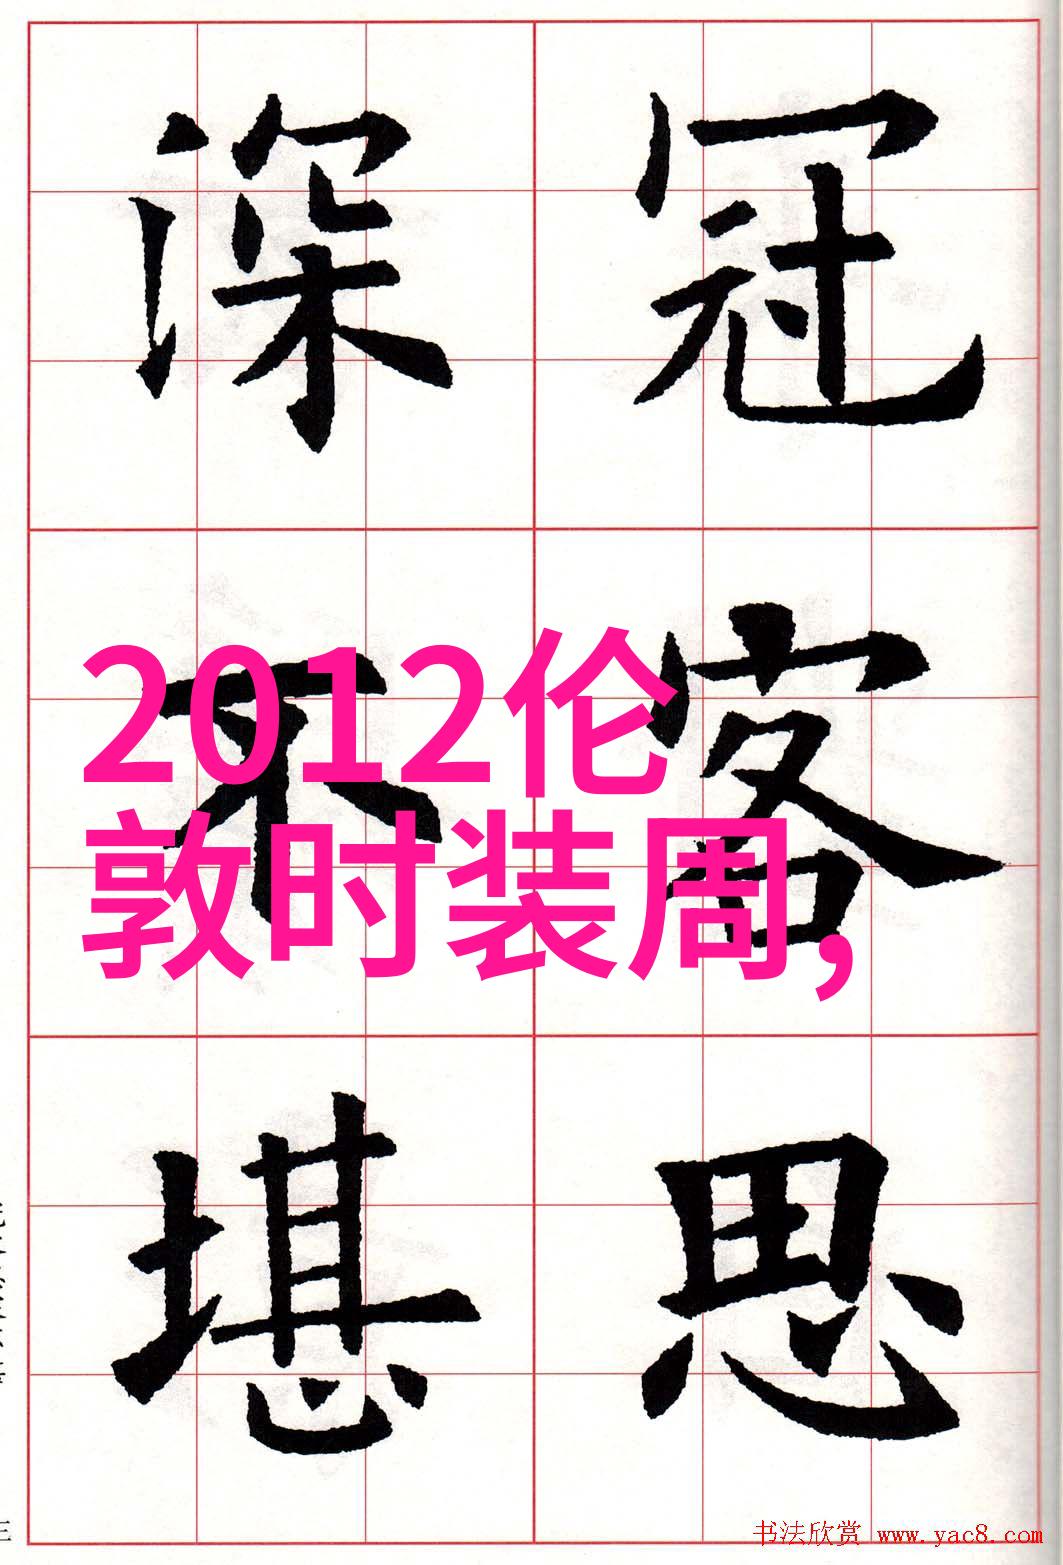 深冠
不客
堪思
2012伦
敦时装周,
书法欣赏 www.yac8.com